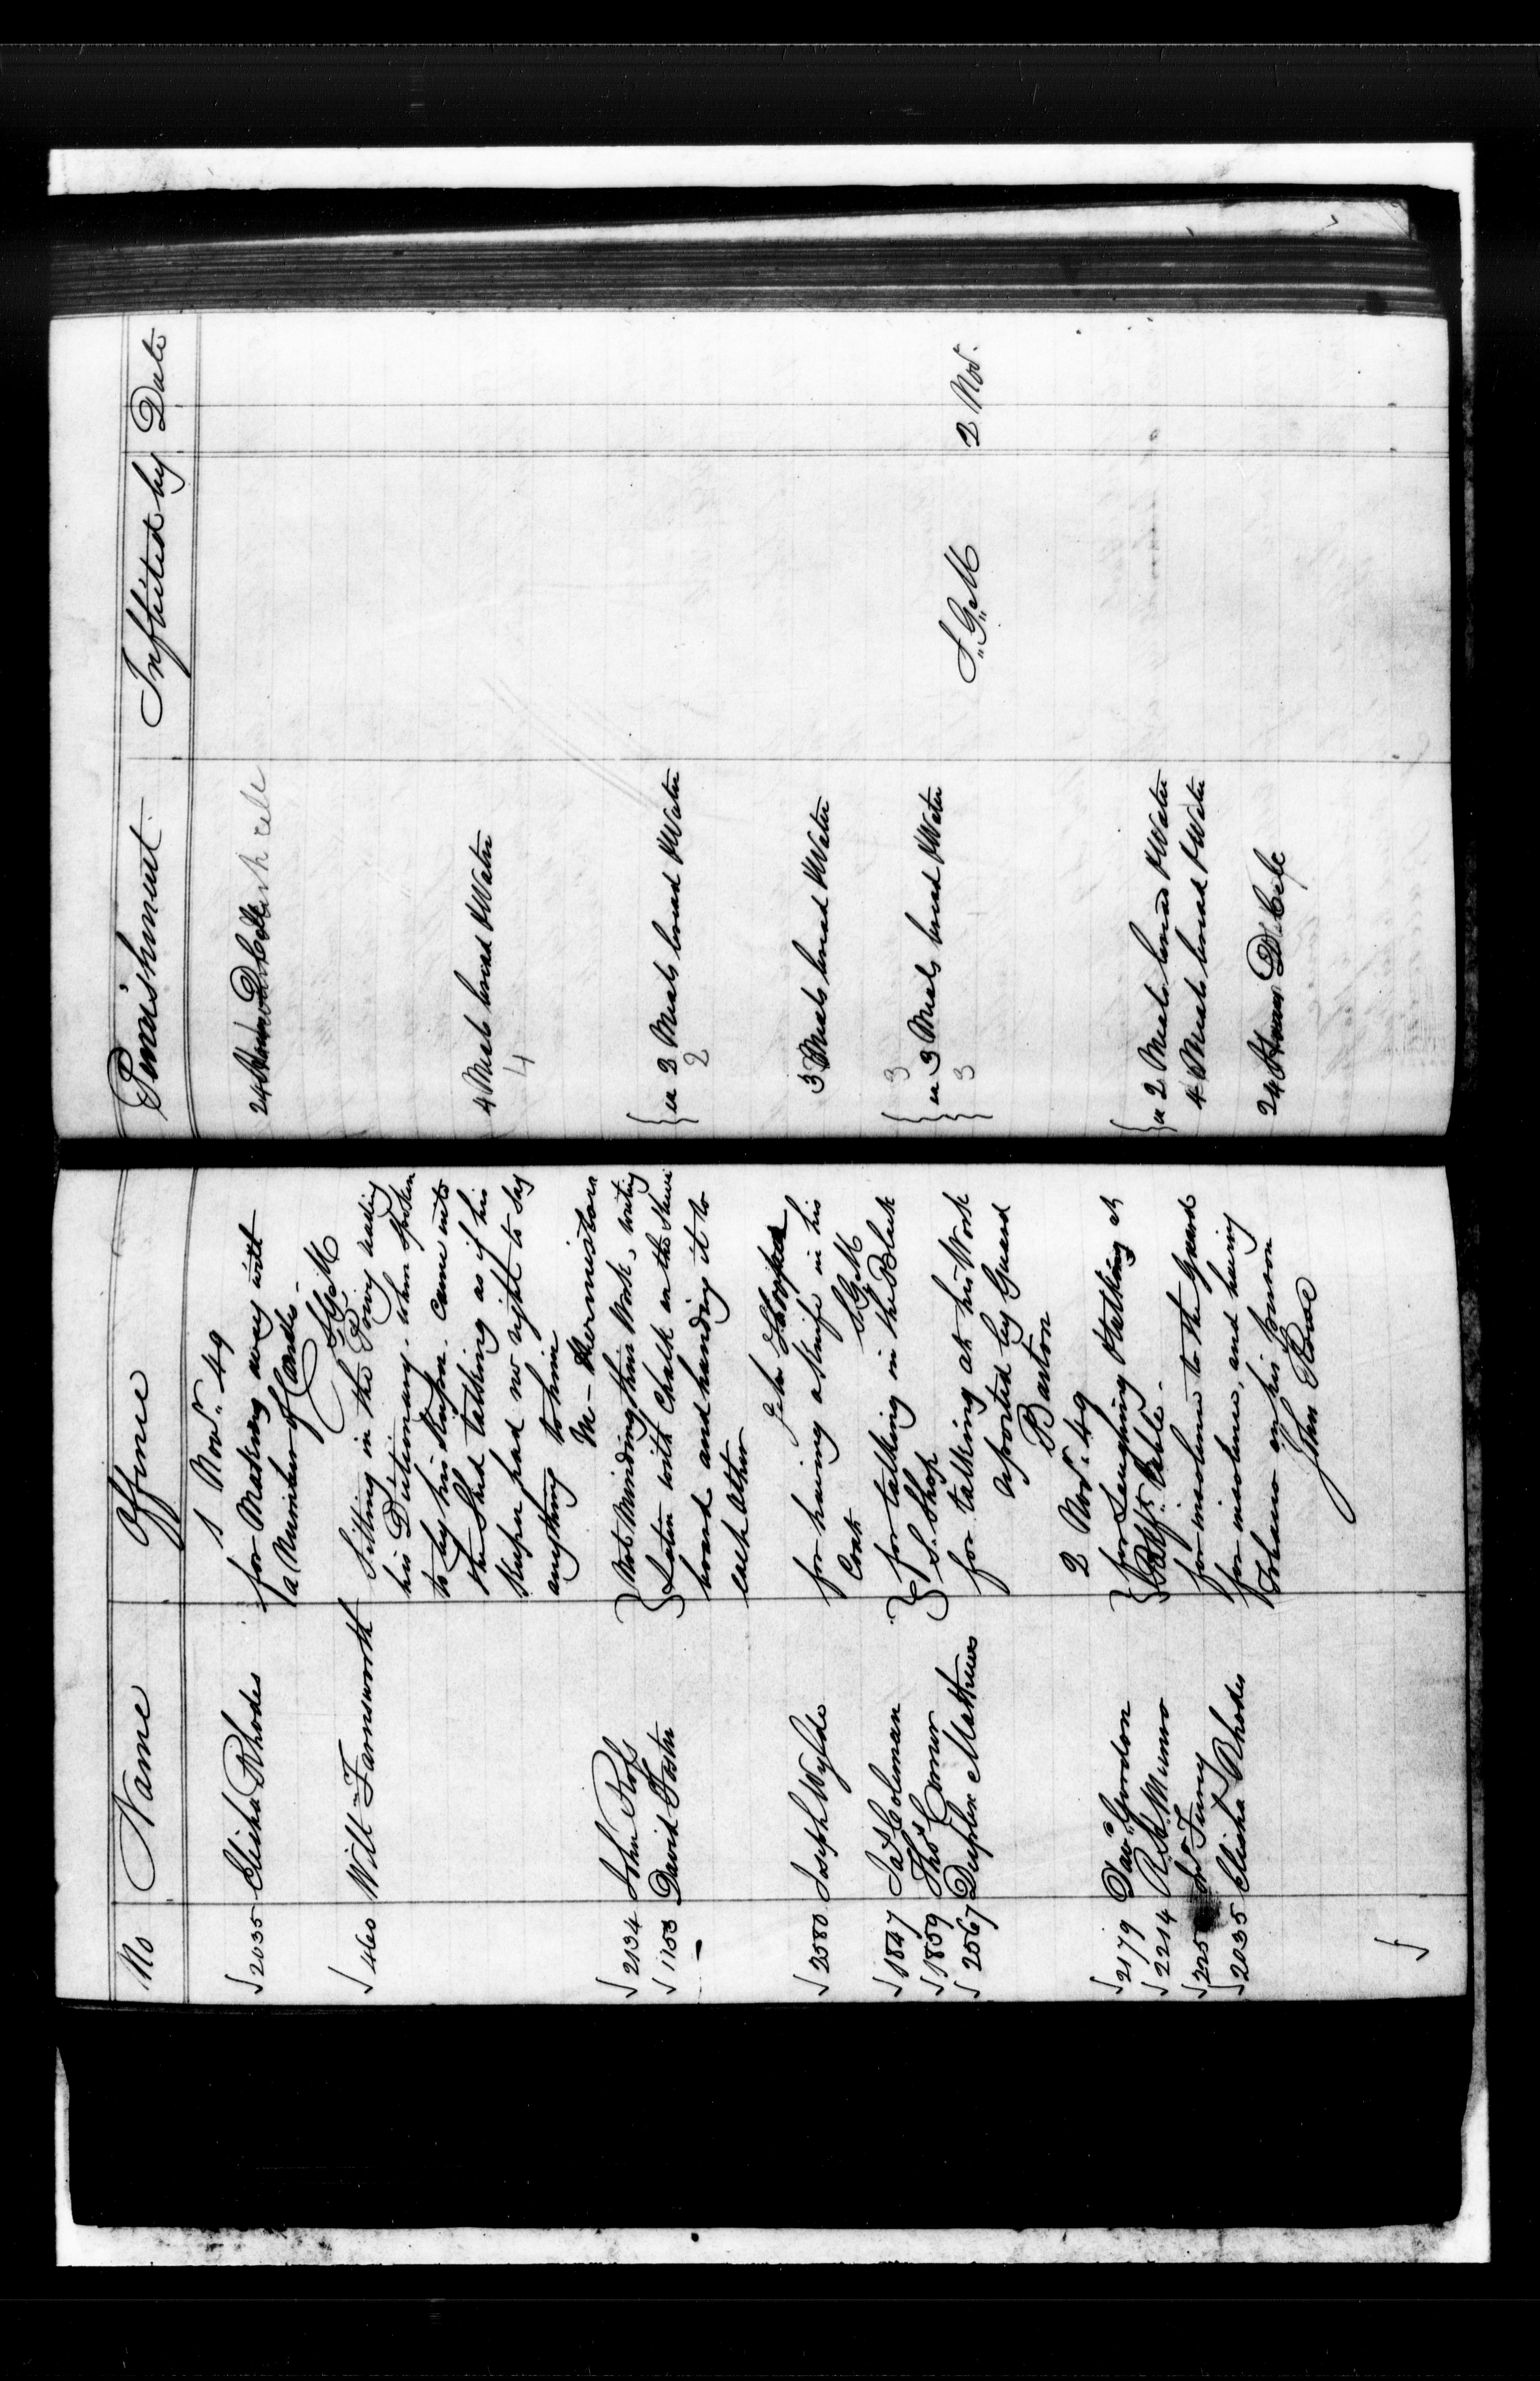 No Name Offence Punishment Inflicted by Date
1 Novr. 49
√ 2035 Elisha Rhodes for Making away with 24 Hours D. Cell
a Number of Candles -
S.G.M
√ 460 Will Farnsworth Sitting in the Privy reading
his Dictionary. when Spoken
to by his Keeper. Came into
the Shed talking as if his 4 Meals bread & Water
Keeper had no right to say 4
anything to him
√ 2134 John Ross } Not Minding their Work, writing {
√ 1153 David Foster } Letter with Chalk on the Shoe { ea 2 Meals bread & Water
board and handing it to 2
each other
John
√ 2580 Joseph Wylde for having a Knife in his 3 Meals bread & Water
Coat S.G.M
√ 1847 Jas Coleman } for talking in the Black { 3
√ 1859 Thos Connor } S. Shop { ea 3 Meals bread & Water
√ 2567 Duplex Mathews for talking at his Work { 3 S.G.M 2 Nov.
reported by Guard
Barton
2 Novr. 49
√ 2179 Davd. Gordon } for Laughing & talking at {
√ 2214 R. A. Munro } Bkft. Table. { ea 2 Meals bread & Water
√ 225 Furry for insolence to the Guards 4 Meals bread & Water
√ 2035 Elisha Rhodes for insolence, and having
Tobacco on his Person 24 Hours D. Cell
John Rowe
√